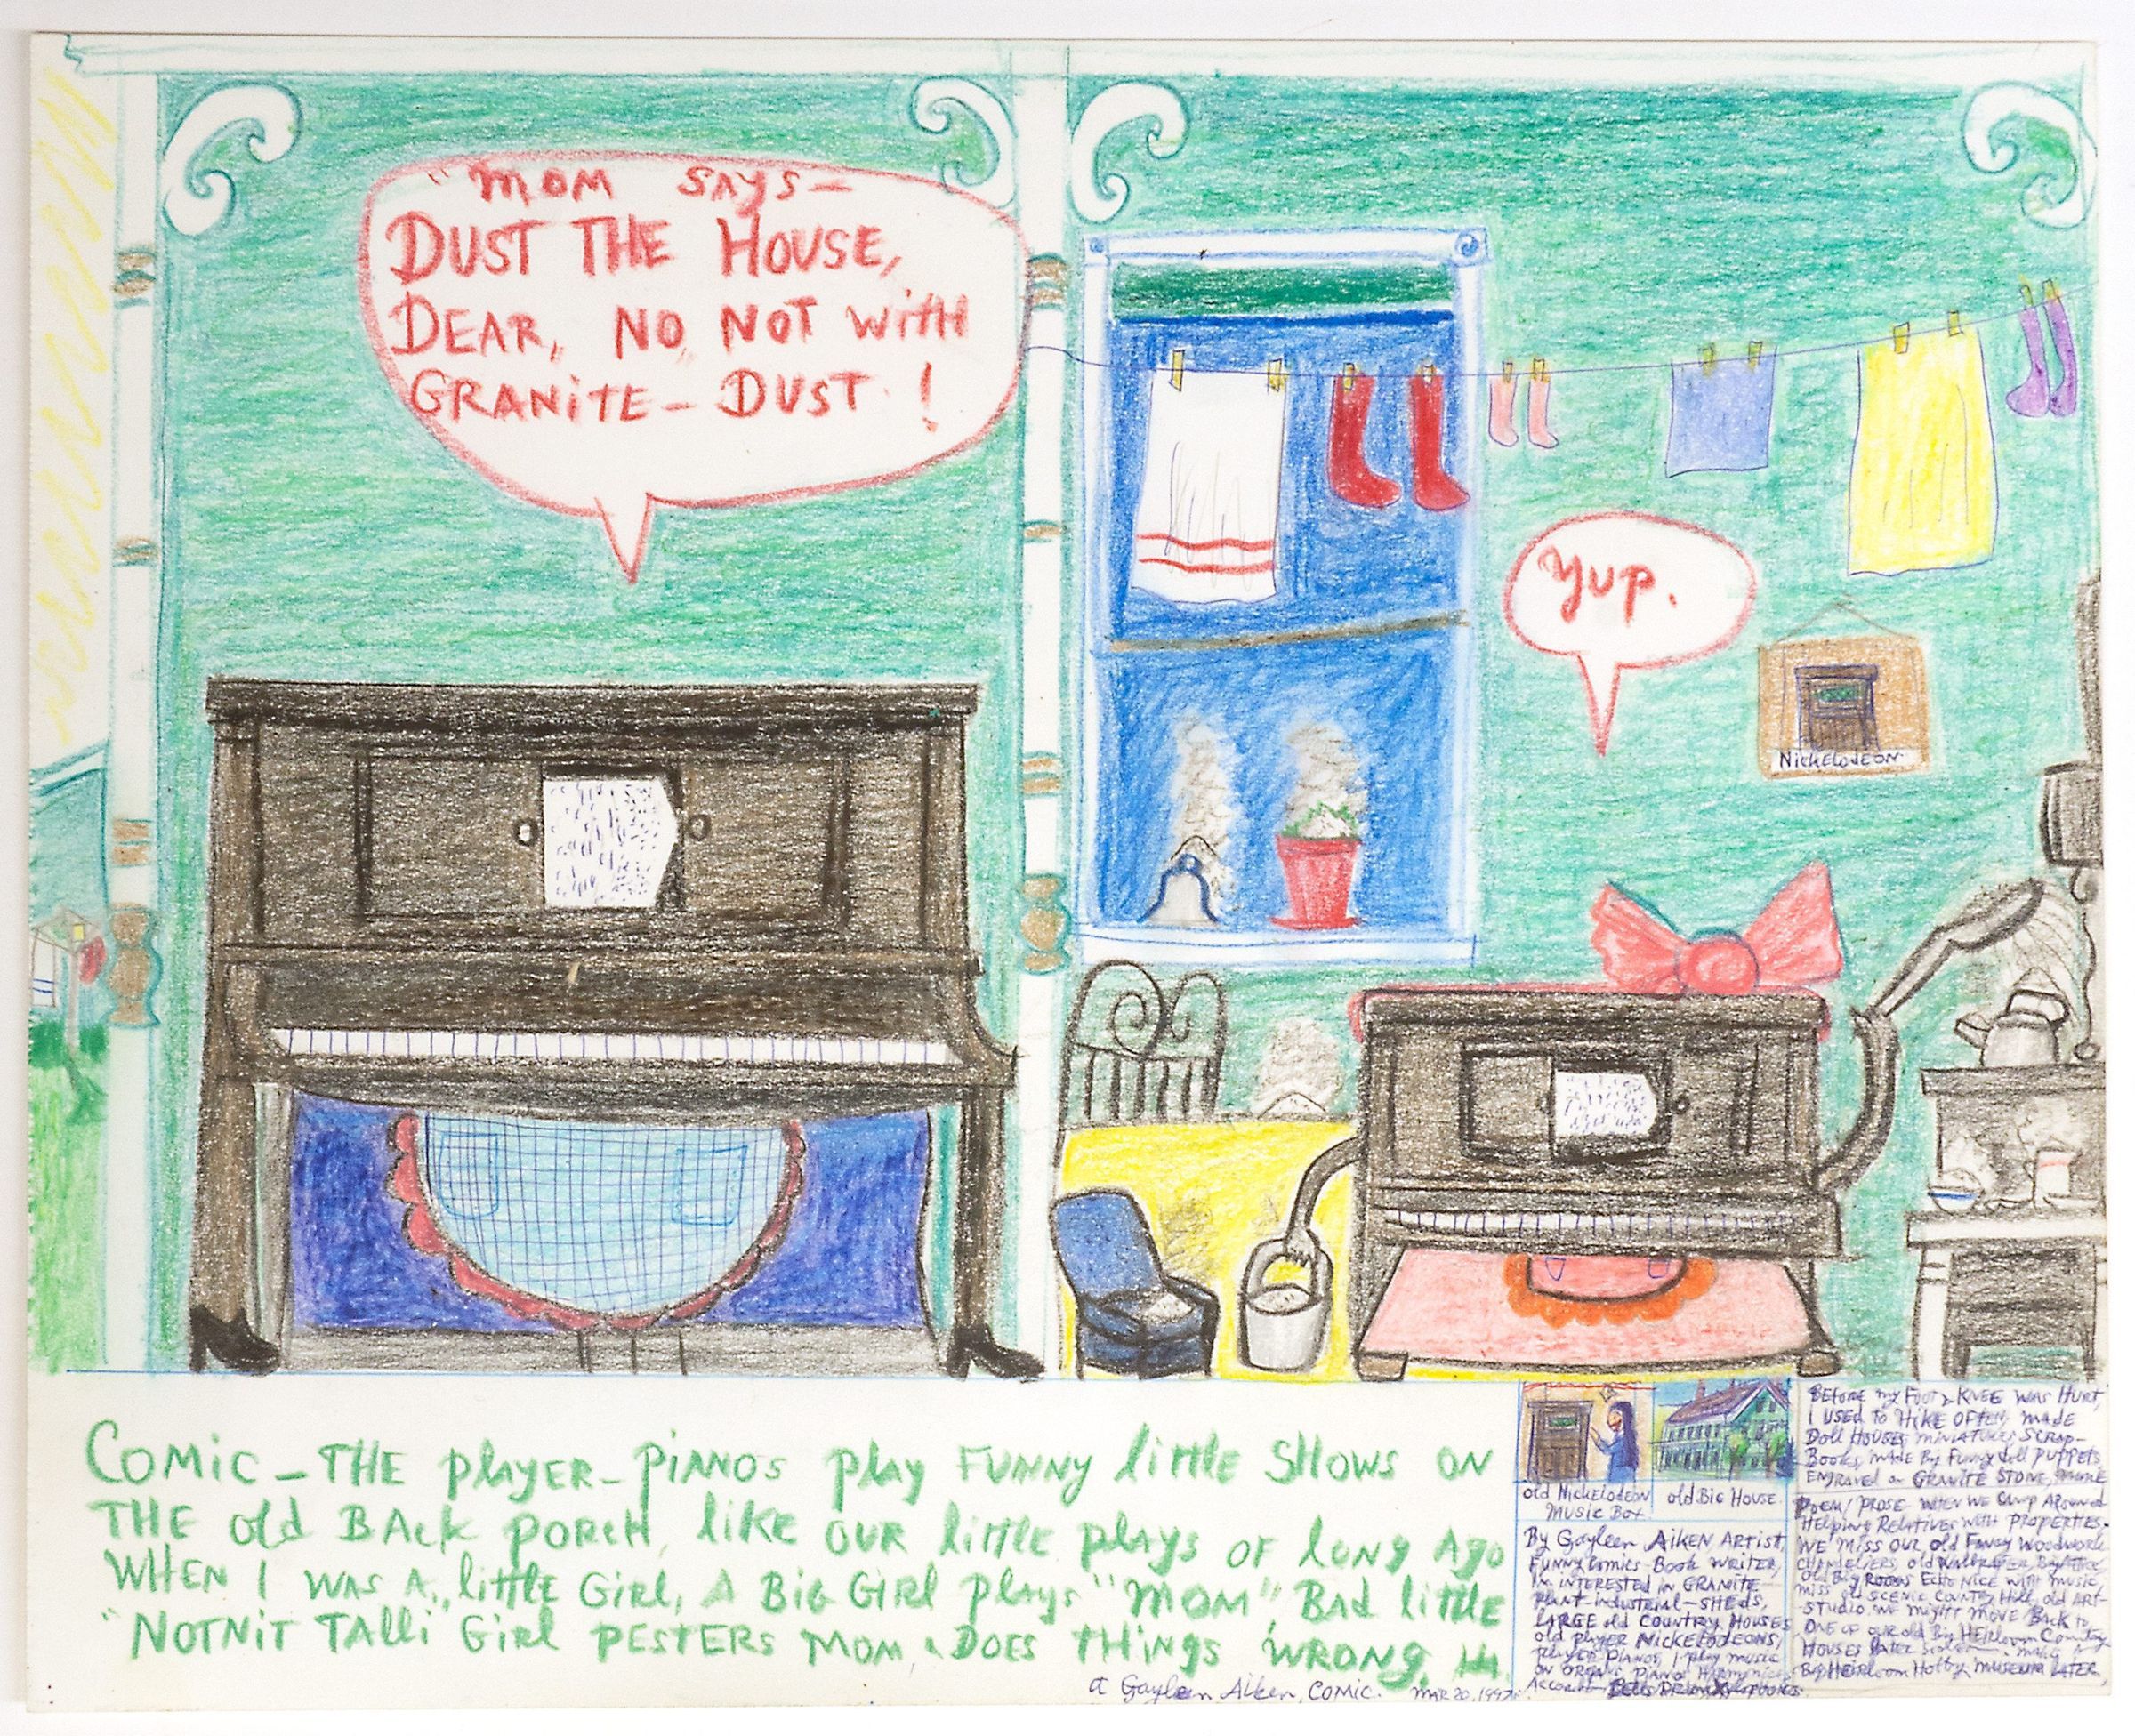 "MOM SAYS—
DUST THE HOUSE,
DEAR, NO, NOT WITH
GRANITE—DUST!
Yup.
NICKELODEON
COMIC—THE PLAYER—PIANOS PLAY FUNNY LITTLE SHOWS ON
THE OLD BACK PORCH, LIKE OUR LITTLE PLAYS OF LONG AGO
WHEN I WAS A LITTLE GIRL, A BIG GIRL PLAYS "MOM", BAD LITTLE
"NOTNIT TALLI" GIRL PESTERS MOM, & DOES THINGS WRONG,
a Gayleen Aiken, COMIC. MAR 20, 1997
old Nickelodeon
Music Box
old BIG HOUSE.
By Gayleen AIKEN ARTIST,
FUNNY COMICS-BOOK WRITER,
I'M INTERESTED IN GRANITE
PLANT-INDUSTRIAL-SHEDS,
LARGE old COUNTRY HOUSES
old player NICKELODEONS,
player PIANOS, I play music
ON ORGAN, PIANO HARMONICA,
BEFORE my FOOT & KNEE WAS HURT,
I USED TO HIKE OFTEN, MADE
Doll HOUSES MINIATURES SCRAP-
BOOKS, made Big Funny doll puppets
ENGRAVED on GRANITE STONE,
POEM/PROSE— WHEN WE CAMP AROUND
HELPING RELATIVES WITH PROPERTIES.
WE MISS OUR old FANCY WOODWORK
CHANDELIERS, old WALLPAPER, Big
old Big ROOMS ECHO NICE WITH MUSIC,
miss old SCENIC COUNTRY HILL, old ART-
STUDIO. WE might MOVE BACK to
ONE OF OUR old Big HEIRLOOM Country
HOUSES LATER
Big HEIRLOOM Hobby MUSEUM LATER,